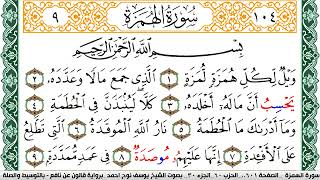 ١٠٤ سُورَةُ الْهُمَزَةِ ٩
بِسْمِ اللَّهِ الرَّحْمَٰنِ الرَّحِيمِ
وَيْلٌ لِّكُلِّ هُمَزَةٍ لُّمَزَةٍ ١ الَّذِي جَمَعَ مَالًا وَعَدَّدَهُ ٢
يَحْسِبُ أَنَّ مَالَهُ أَخْلَدَهُ ٣ كَلَّا لَيُنۢبَذَنَّ فِي الْحُطَمَةِ ٤
وَمَا أَدْرَىٰكَ مَا الْحُطَمَةُ ٥ نَارُ اللَّهِ الْمُوقَدَةُ ٦ الَّتِي تَطَّلِعُ
عَلَى الْأَفْـِٔدَةِ ٧ إِنَّهَا عَلَيْهِمُ مُوصَدَةٌ ٨ فِي عَمَدٍ مُّمَدَّدَةٍ ٩
سورة الهمزة . الصفحة ٦٠١ .. الحزب ٦٠ . الجزء ٣٠ . بصوت الشيخ يوسف نوح احمد . برواية قالون عن نافع - بالتوسيط والصلة